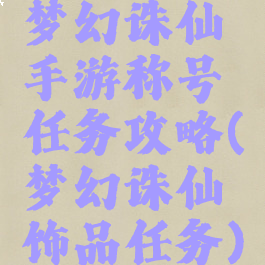 梦幻诛仙
手游称号
任务攻略(
梦幻诛仙
饰品任务)